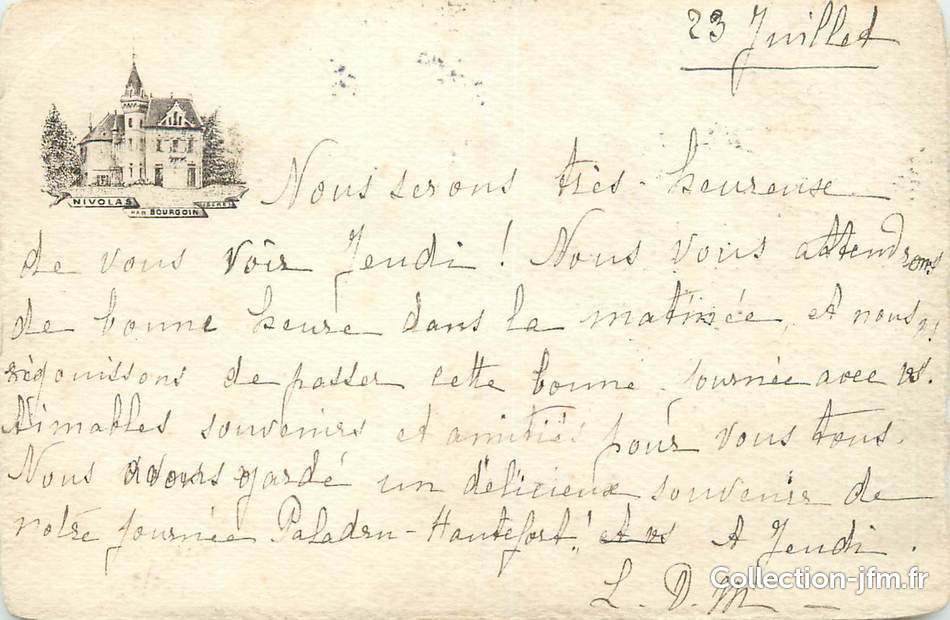 23 Juillet
NIVOLAS
PAR BOURGOIN
(ISÈRE)
Nous serons très heureuse
de vous voir Jeudi ! Nous vous attendrons
de bonne heure dans la matinée, et nous n/
réjouissons de passer cette bonne journée avec vs.
Aimables souvenirs et amitiés pour vous tous.
Nous avons gardé un délicieux souvenir de
notre journée Paladru-Hautefort ! et vs A Jeudi.
L. D. M —
Collection-jfm.fr